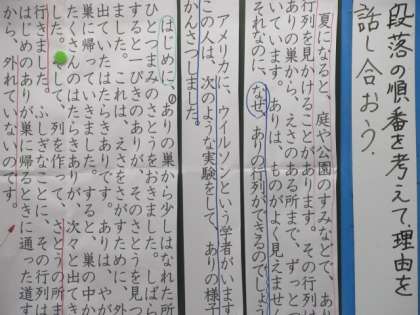 段落の順番を考えて理由を
話し合おう。
夏になると、庭や公園のすみなどで、あり
行列を見かけることがあります。その行列は
ありの巣から、えさのある所まで、ずっとつ
いています。ありは、ものがよく見えませ
それなのに、なぜ、ありの行列ができるのでしょう
アメリカに、ウイルソンという学者がいます
この人は、次のような実験をして、ありの様子
かんさつしました。
はじめに、ありの巣から少しはなれた所
ひとつまみのさとうをおきました。しばら
すると一ぴきのありが、そのさとうを見つ
ました。これは、えさをさがすために、外
出ていたはたらきありです。ありは、やが
巣に帰っていきました。すると、巣の中か
たくさんのはたらきありが、次々と出てき
した。そして、列を作って、さとうの所ま
行きました。ふしぎなことに、その行列は
はじめのありが巣に帰るときに通った道す
から、外れていないのです。